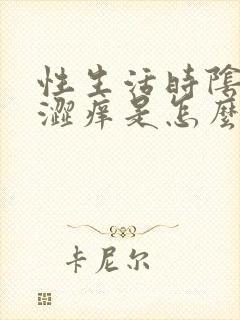 性生活時陰
澀痒是怎麼
卡尼尔